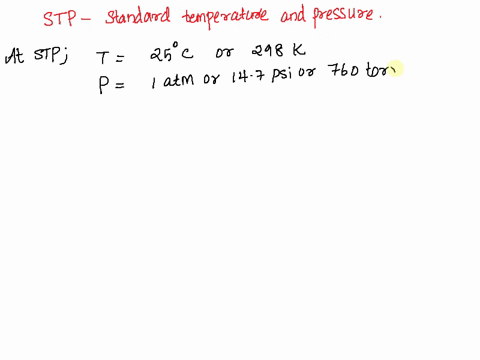 STP - Standard temperature and pressure.
At STP; T = 25°C or 298 K
P = 1 atm or 14.7 psi or 760 torr